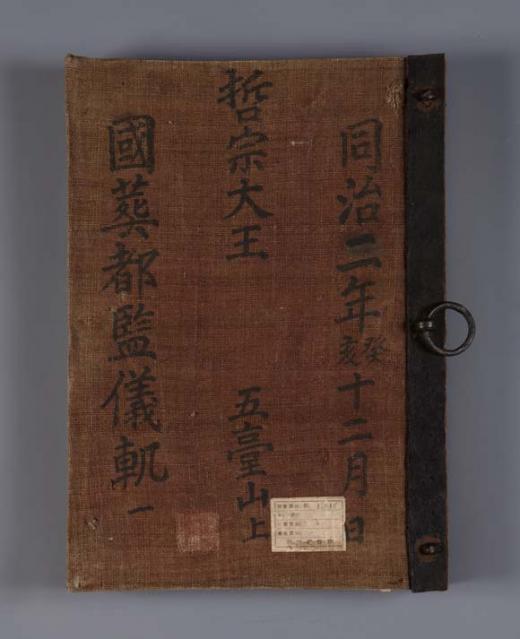 同治二年癸亥十二月 日
哲宗大王
五臺山上
國葬都監儀軌 一